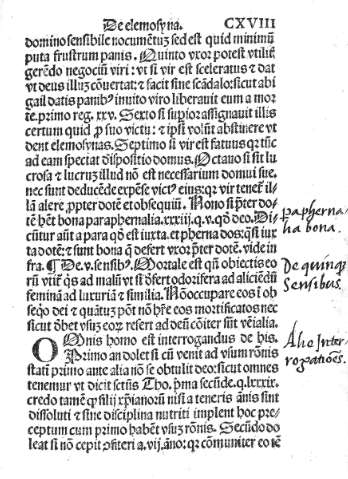 De elemosyna. CXVIII
domino sensibile nocumētuʒ sed est quid minimū
puta frustrum panis. Quinto vxor potest vtiliť
gerēdo negociū viri: vt si vir est sceleratus & dat
vt deus illuʒ cōuertat: & facit sine scādalo: sicut abi
gail datis panibꝰ inuito viro liberauit eum a mor
te. primo reg. xxv. Sexto si supior assignauit illis
certum quid ꝓ suo victu: & ipsi volūt abstinere vt
dent elemosynas. Septimo si vir est fatuus qꝛ tūc
ad eam spectat dispositio domus. Octauo si sit lu
crosa & lucruʒ illud nō est necessarium domui sue.
nec sunt deducēde expēse victꝰ eius: qꝛ vir tenet᷑ il
lā alere ꝓpter dotē et obsequiū. Nono si p̄ter do
tē hēt bona paraphernalia. xxxiii. q. v. qd̄ deo. Di
cūtur aūt a para qd̄ est iuxta. et pherna dos: qsi iux
ta dotē: & sunt bona q̄ defert vxor p̄ter dotē. vide in
fra. ¶ De. v. sensibꝰ. Mortale est qn̄ obiectis eo
rū vtit᷑ qs ad malū: vt si d̄fert odorifera ad aliciēdū
feminā ad luxuriā & similia. Nō occupare eos ī ob
seqo dei & quātuʒ pōt nō hr̄e eos mortificatos nec
sicut dʒ het vsuʒ eoꝝ refert ad deū cōiter sūt vēialia.
OMnis homo est interrogandus de his.
Primo an dolet si cū venit ad vsum rōnis
statī primo ante alia nō se obtulit deo: sicut omnes
tenemur vt dicit sctūs Tho. p̄ma secūde. q. lxxxix.
credo tamē ꝙ filij xp̄ianorū nisi a teneris ānis sint
dissoluti & sine disciplina nutriti implent hoc pre
ceptum cum primo habēt vsuʒ rōnis. Secūdo do
leat si nō cepit ꝯfiteri a. vij. āno: qꝛ cōmuniter eo tē
papherna
lia bona.
De quinqȝ
Sensibus
Alie Inter
rogatiões.